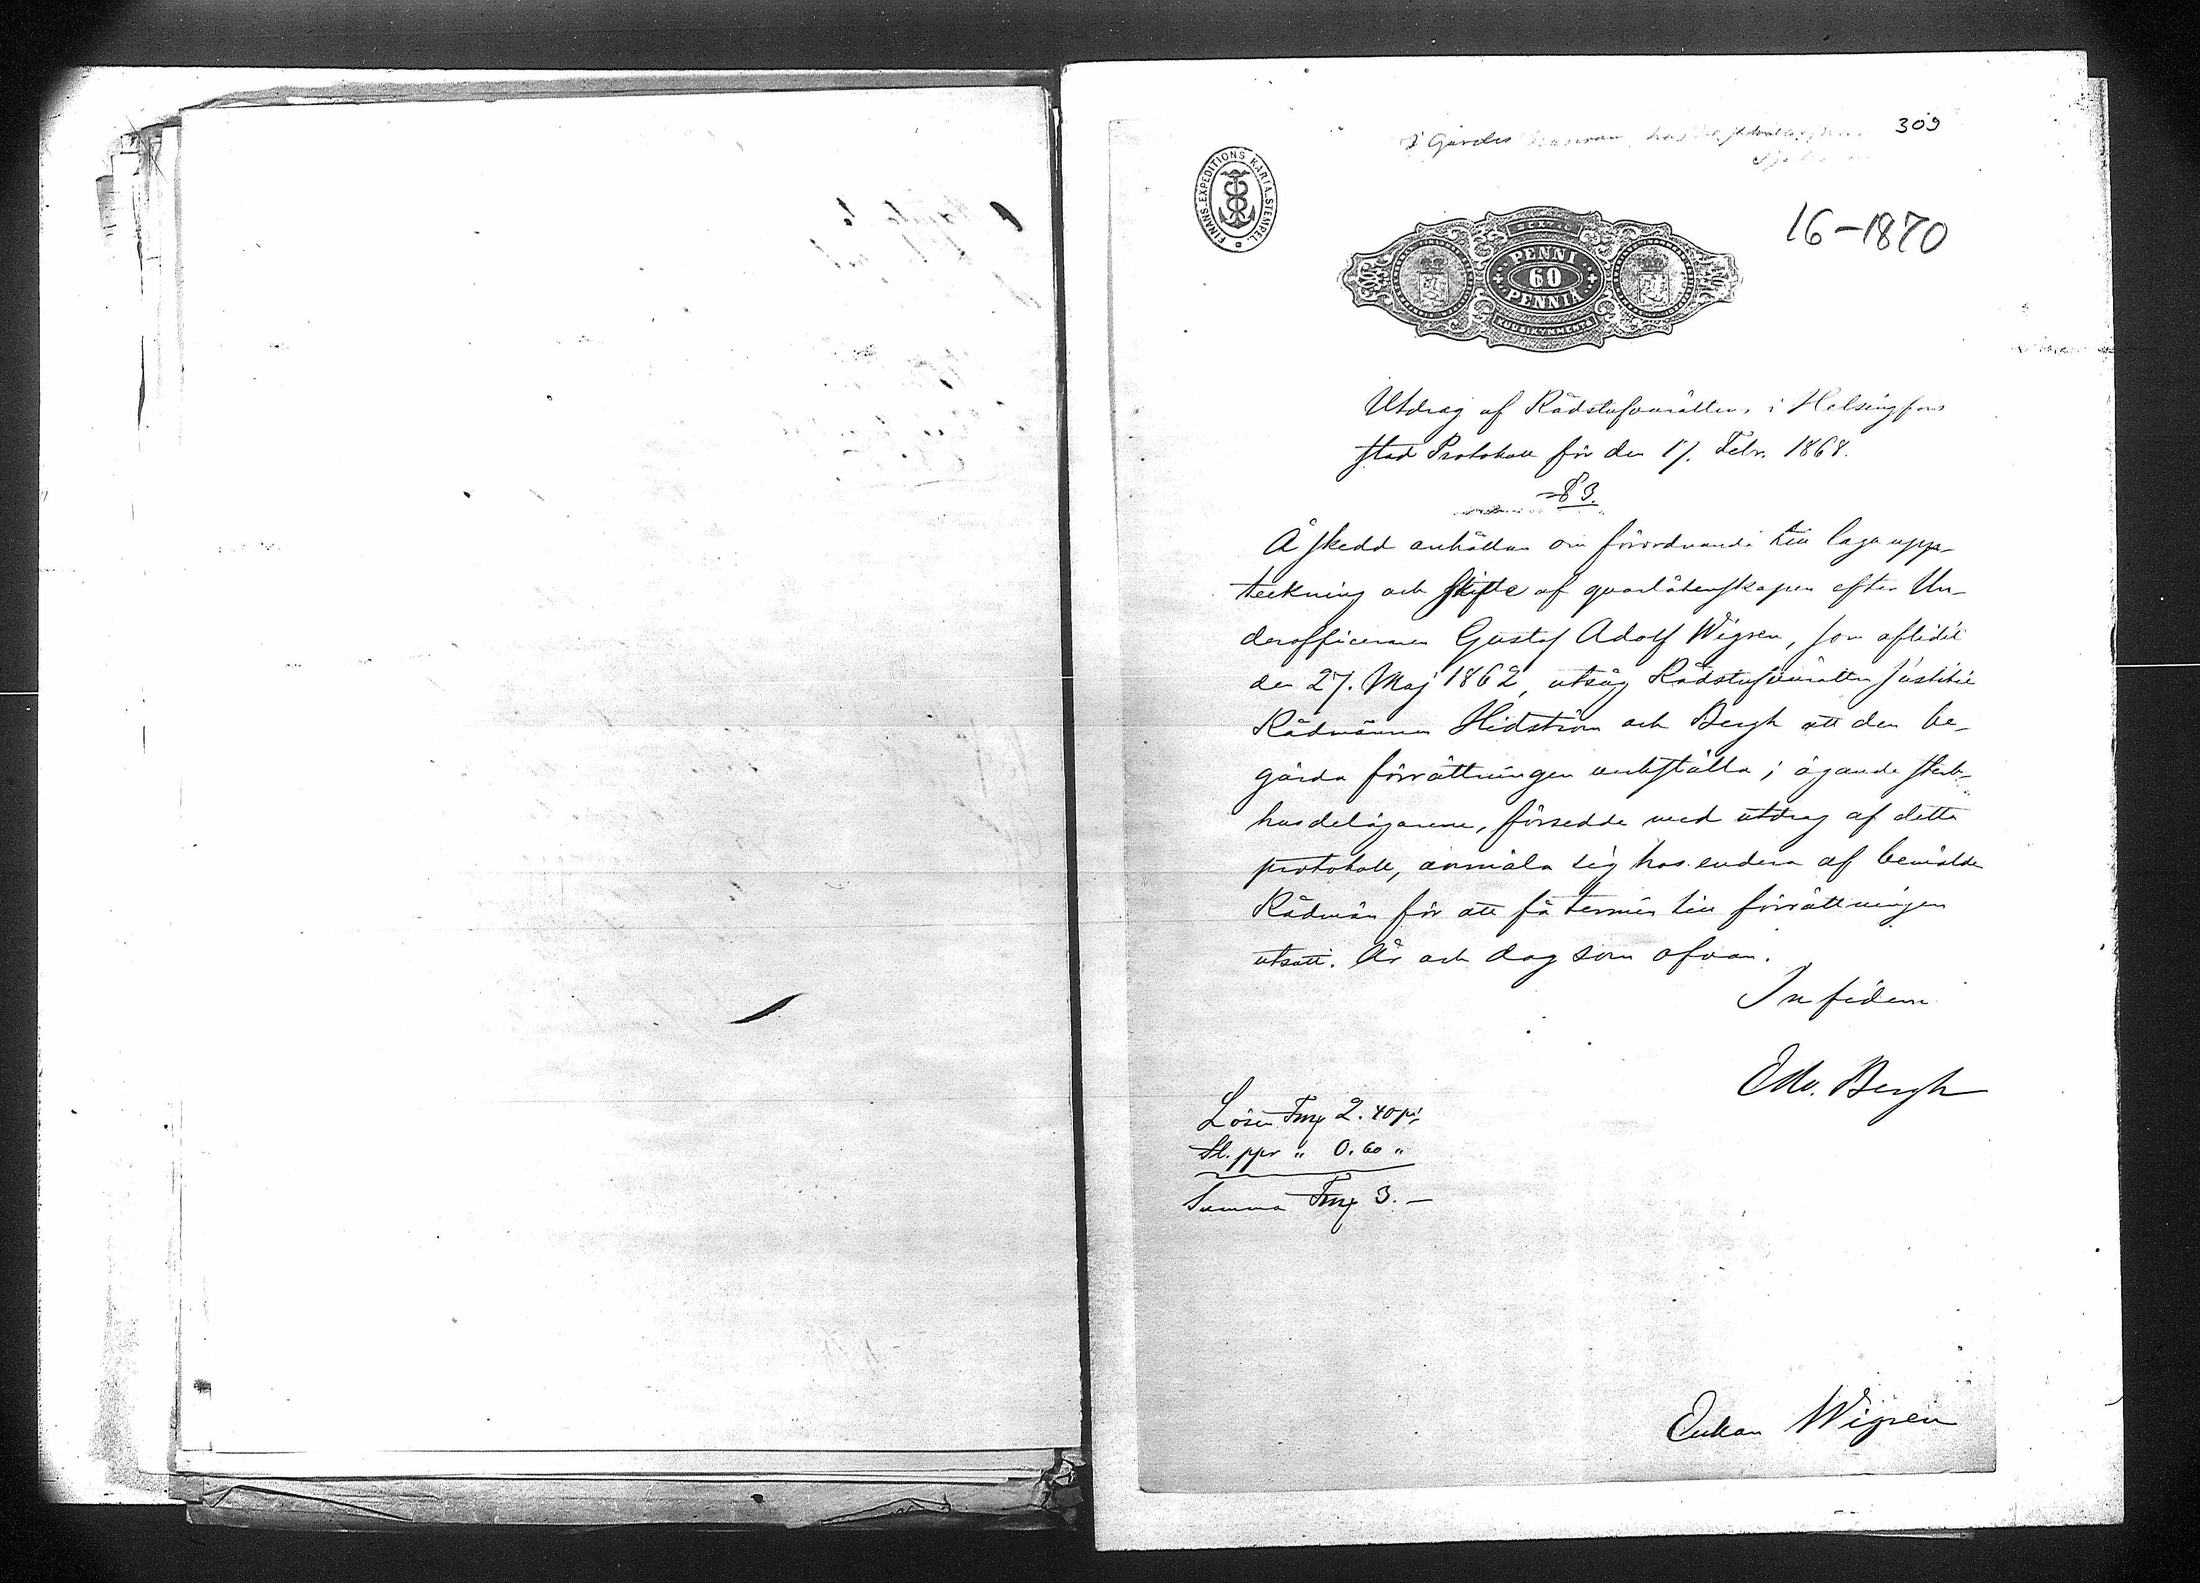 309
I Gardes
FINANS-EXPEDITIONS KARTA.STEMPEL.
16-1870
PENNI
60
PENNIÄ
KUUSIKYMMENTÄ
Utdrag af Rådstufvurätten i Helsingfors
stad Protokoll för den 17. Febr. 1868.
§ 3.
Å skedd anhållan om förordnande till laga upp-
teckning och skifte af qvarlåtenskapen efter Un-
derofficeraren Gustaf Adolf Wigren, som aflidit
den 27. Maj 1862, utsåg Rådstufvurätten Justitie
Rådmännen Hidström och Bergh att den be-
gärda förrättningen verkställa; ägande sterb-
husdelägarene, försedde med utdrag af detta
protokoll, anmäla sig hos endera af bemälde
Rådmän för att få termin till förrättningen
utsatt. År och dag som ofvan.
In fidem
Edv. Bergh
Lösen Fmk 2. 40 pi
St. ppr " 0. 60 "
Summa Fmk 3. —
Enkan Wigren